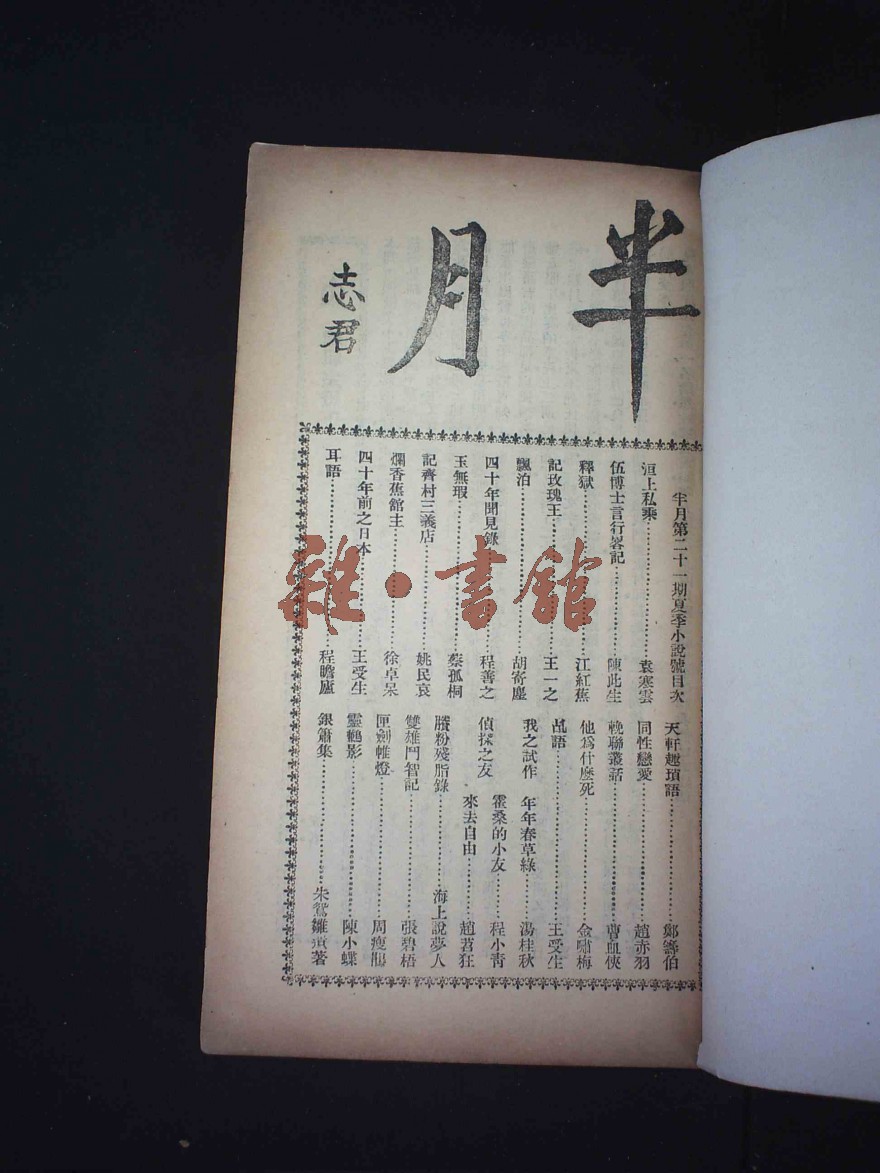 半月
志君
半月第二十一期夏季小說號目次
洹上私乘⋯⋯袁寒雲
伍博士言行畧記⋯⋯陳此生
釋獄⋯⋯江紅蕉
記玫瑰王⋯⋯王一之
飄泊⋯⋯胡寄塵
四十年聞見錄⋯⋯程善之
玉無瑕⋯⋯蔡孤桐
記齊村三義店⋯⋯姚民哀
爛香蕉館主⋯⋯徐卓呆
四十年前之日本⋯⋯王受生
耳語⋯⋯程瞻廬
天軒趣瑣語⋯⋯鄭籌伯
同性戀愛⋯⋯趙赤羽
輓聯叢話⋯⋯曹血俠
他爲什麽死⋯⋯金嘯梅
乩語⋯⋯王受生
我之試作 年年春草綠⋯⋯湯桂秋
偵探之友 霍桑的小友⋯⋯程小青
來去自由⋯⋯趙苕狂
賸粉殘脂錄⋯⋯海上說夢人
雙雄鬥智記⋯⋯張碧梧
匣劍帷燈⋯⋯周瘦鵑
靈鶴影⋯⋯陳小蝶
銀簫集⋯⋯朱鴛雛遺著
雜·書館